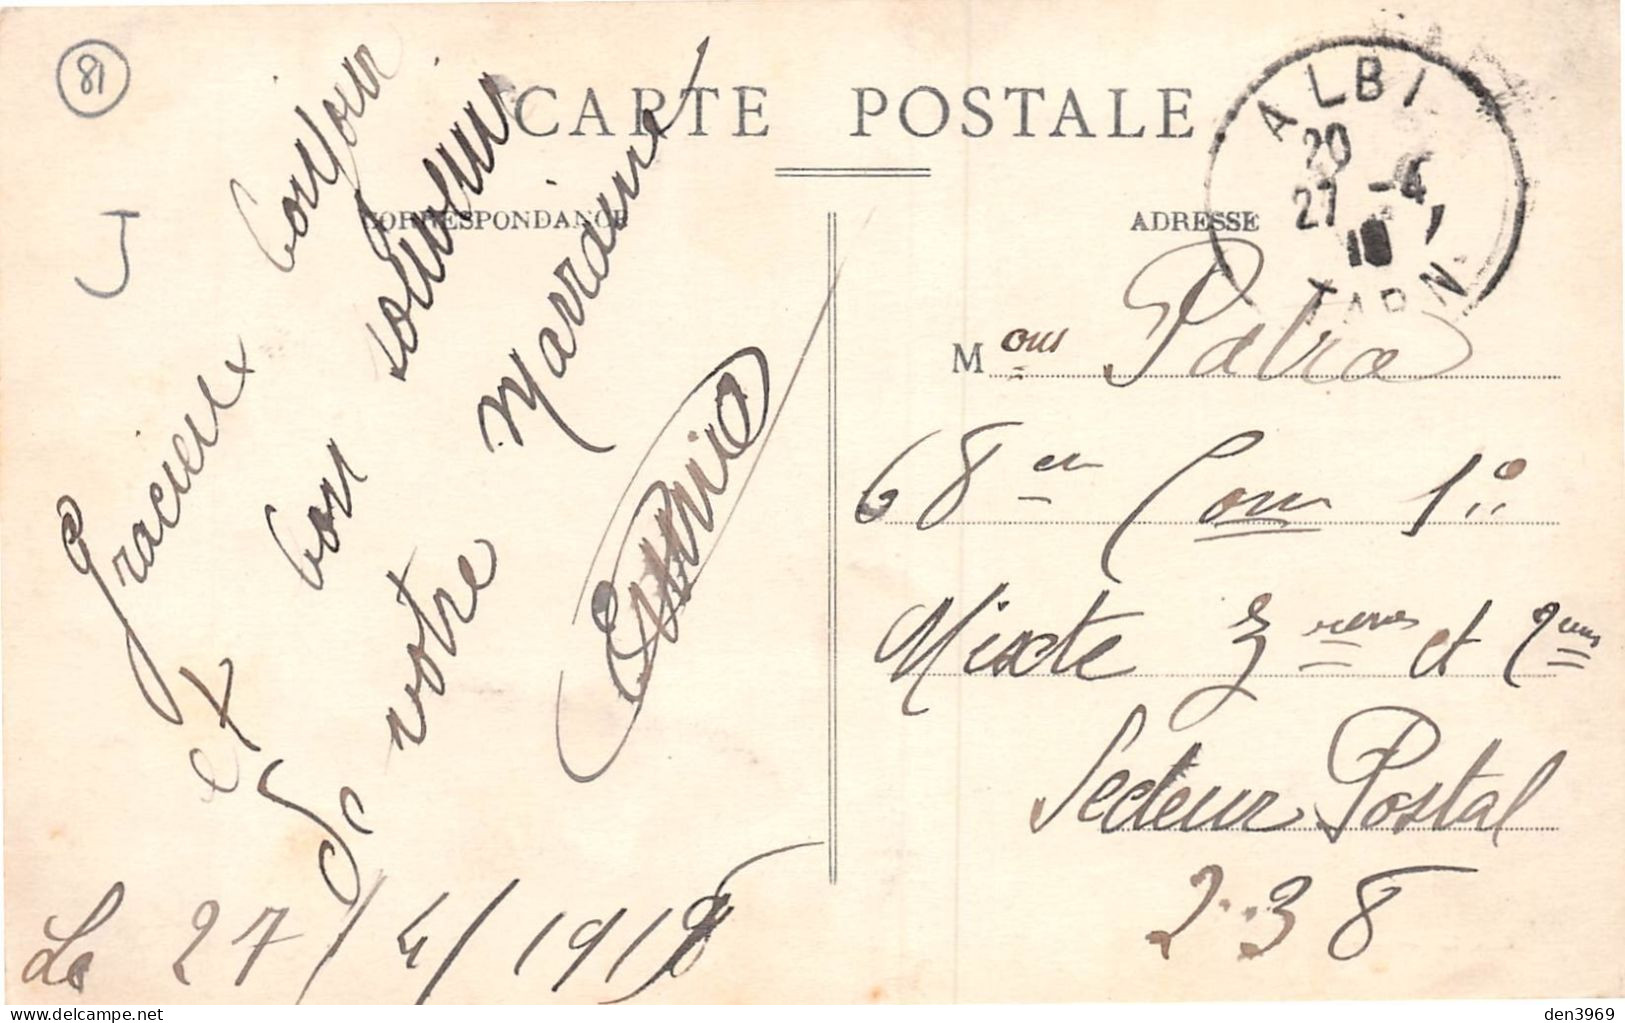 81
CARTE POSTALE
CORRESPONDANCE
ADRESSE
ALBI
20
27 -4
18
TARN
J
Gracieux bonjour
et bon souvenir
De votre Marraine
Le 27/4/1918
Mous
68
Mixte et
Secteur Postal
238
delcampe.net
den3969